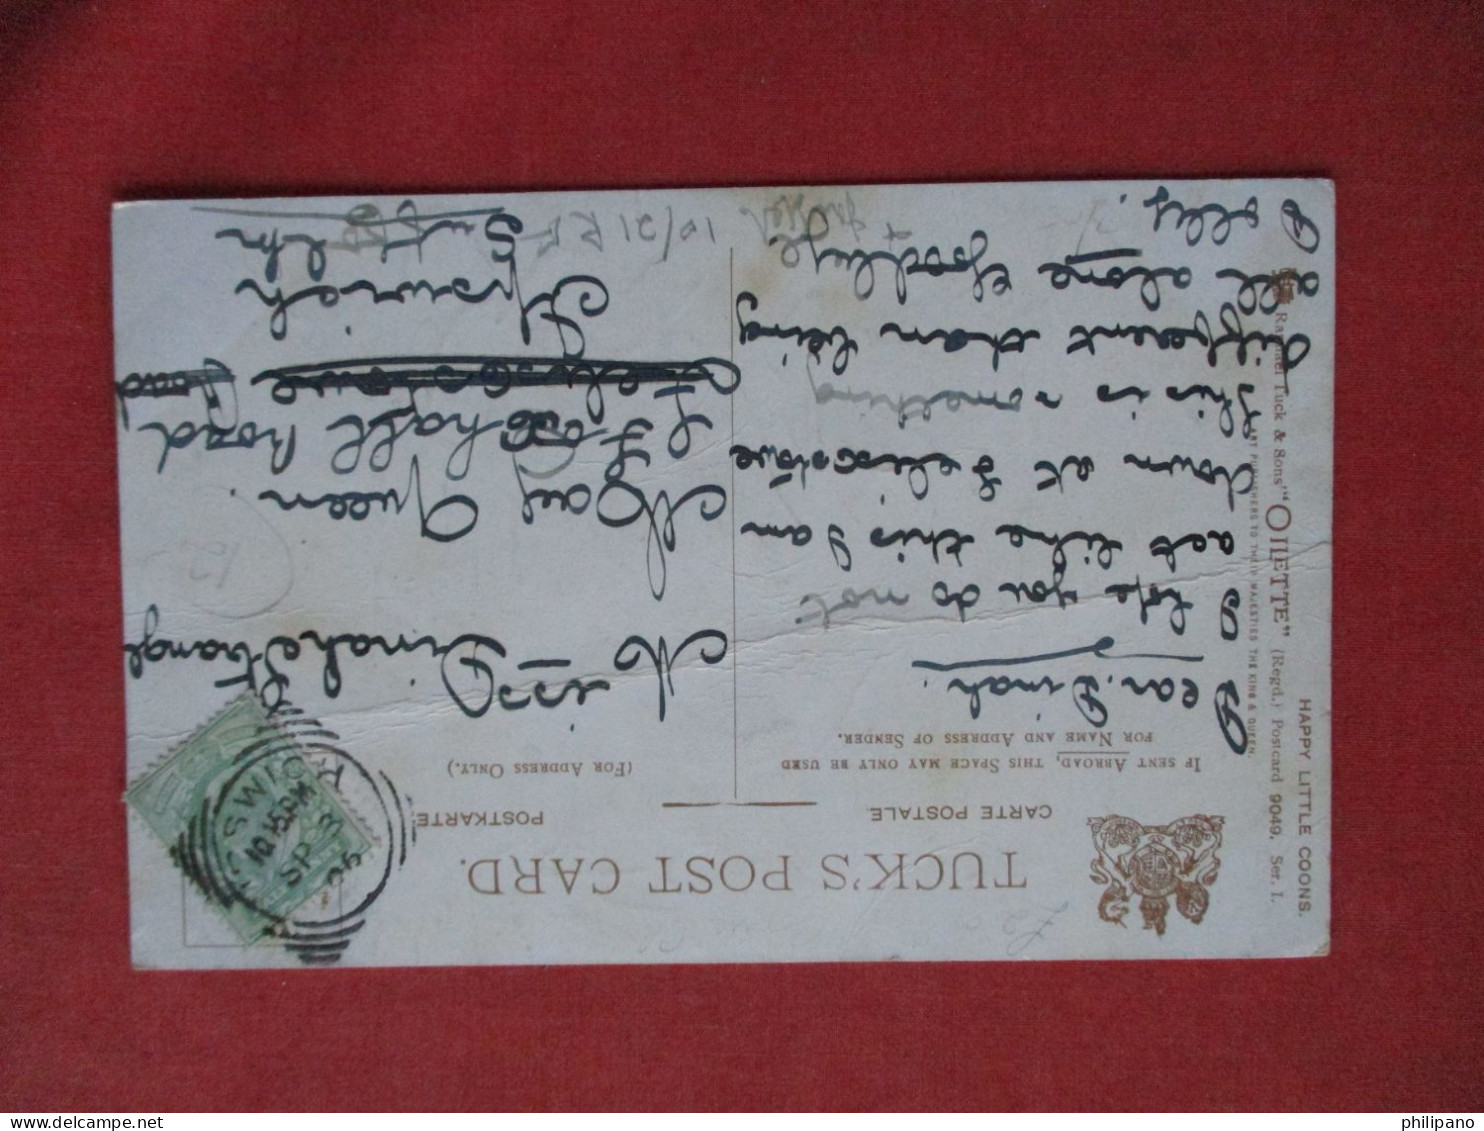 TUCK'S POST CARD.
CARTE POSTALE.
POSTKARTE.
IF SENT ABROAD, THIS SPACE MAY ONLY BE USED
FOR NAME AND ADDRESS OF SENDER.
(FOR ADDRESS ONLY.)
Dear Dinah.
I hope you do not
act like this I am
down at Felixstowe
this is something
different than being
all alone Goodbye.
Dolly.
Miss Dinah Strange
May Queen
Foxhall Road
Felixstowe Road
Ipswich
Suffolk
10/21 R
12
IPSWICH
10.15PM
SP
05
HAPPY LITTLE COONS.
Raphael Tuck & Sons' "OILETTE" (Regd.) Postcard 9049. Ser. I.
ART PUBLISHERS TO THEIR MAJESTIES THE KING & QUEEN.
philipano